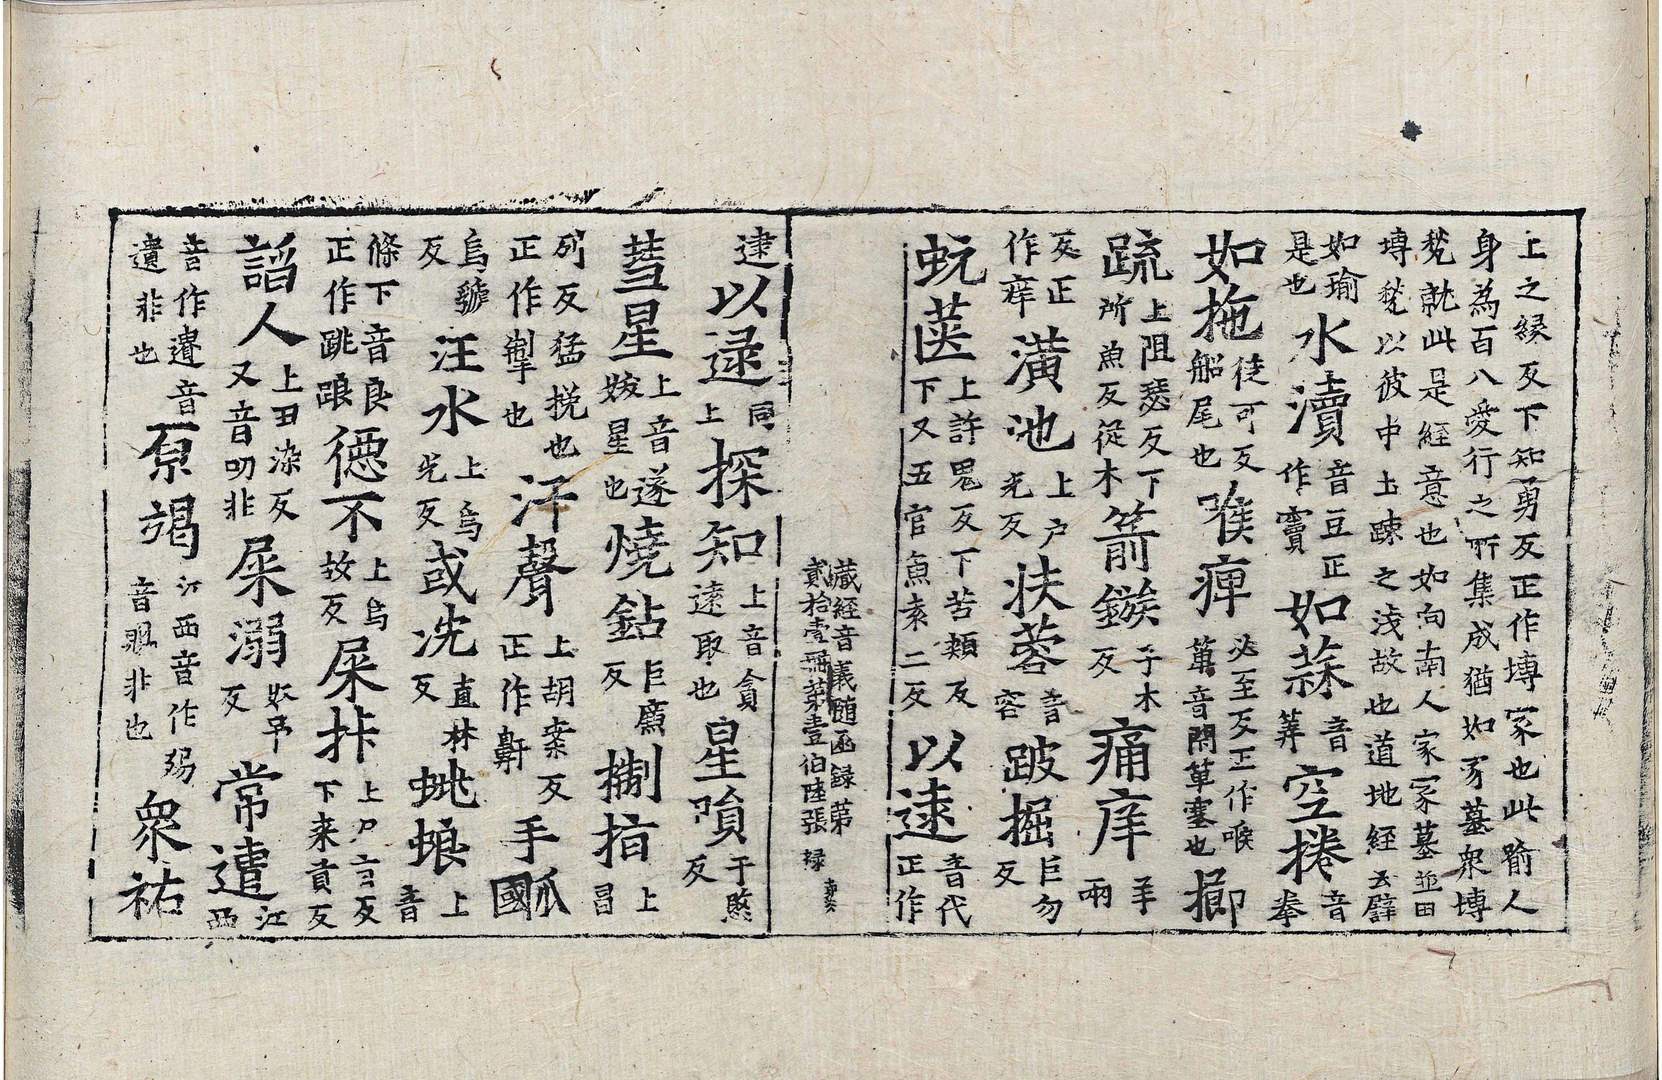 上之縁反下知勇反正作塼冢也此喻人
身為百八愛行之所集成猶如豕墓衆塼
甃就此是經意也如向南人家冢墓並田
塼甃以彼中土踈之淺故也道地經云罋
如瑜是也水瀆音豆正作竇如蒜音筭空捲音拳
如拖徒可反船尾也喉痺必至反正作喉䈏音閇箄塞也擳
䟽上阻瑟反下所魚反從木箭鏃子木反痛庠羊兩
反正作痒潢池上户光反扶蓉音容跛掘巨勿反
蚖医上許鬼反下苦頬反下又五官魚袁二反以逮音代正作
藏經音義随函録第貳拾壹冊第壹伯陸張 禄
逮以逯同上探知上音貪遠取也星隕于愍反
彗星上音遂妭星也燒鉆巨廉反捌㨖上昌
列反猛挩也正作掣也汗聲上胡案反正作鼾手㼌國
烏虢反汪水上烏光反或冼直林反蛻蜋上音
條下音良正作跳踉德不上烏故反屎拤上尸言反下来貢反
謟人上丑染反又音叨非屎溺奴吊反常遺江西
音作遺音遺非也原竭江西音作歹易音䫻非也衆祐